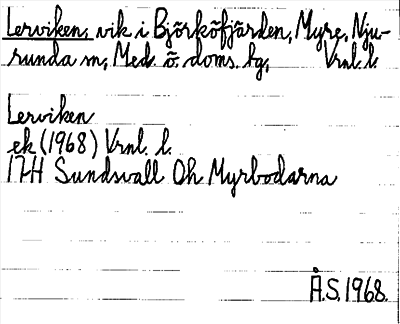 Lerviken, vik i Björköfjärden, Myre, Nju-
runda sn, Med. ö. doms. hg, Vrnl. l.
Lerviken
ek (1968) Vrnl. l.
17H Sundsvall Oh Myrbodarna
Å.S. 1968.